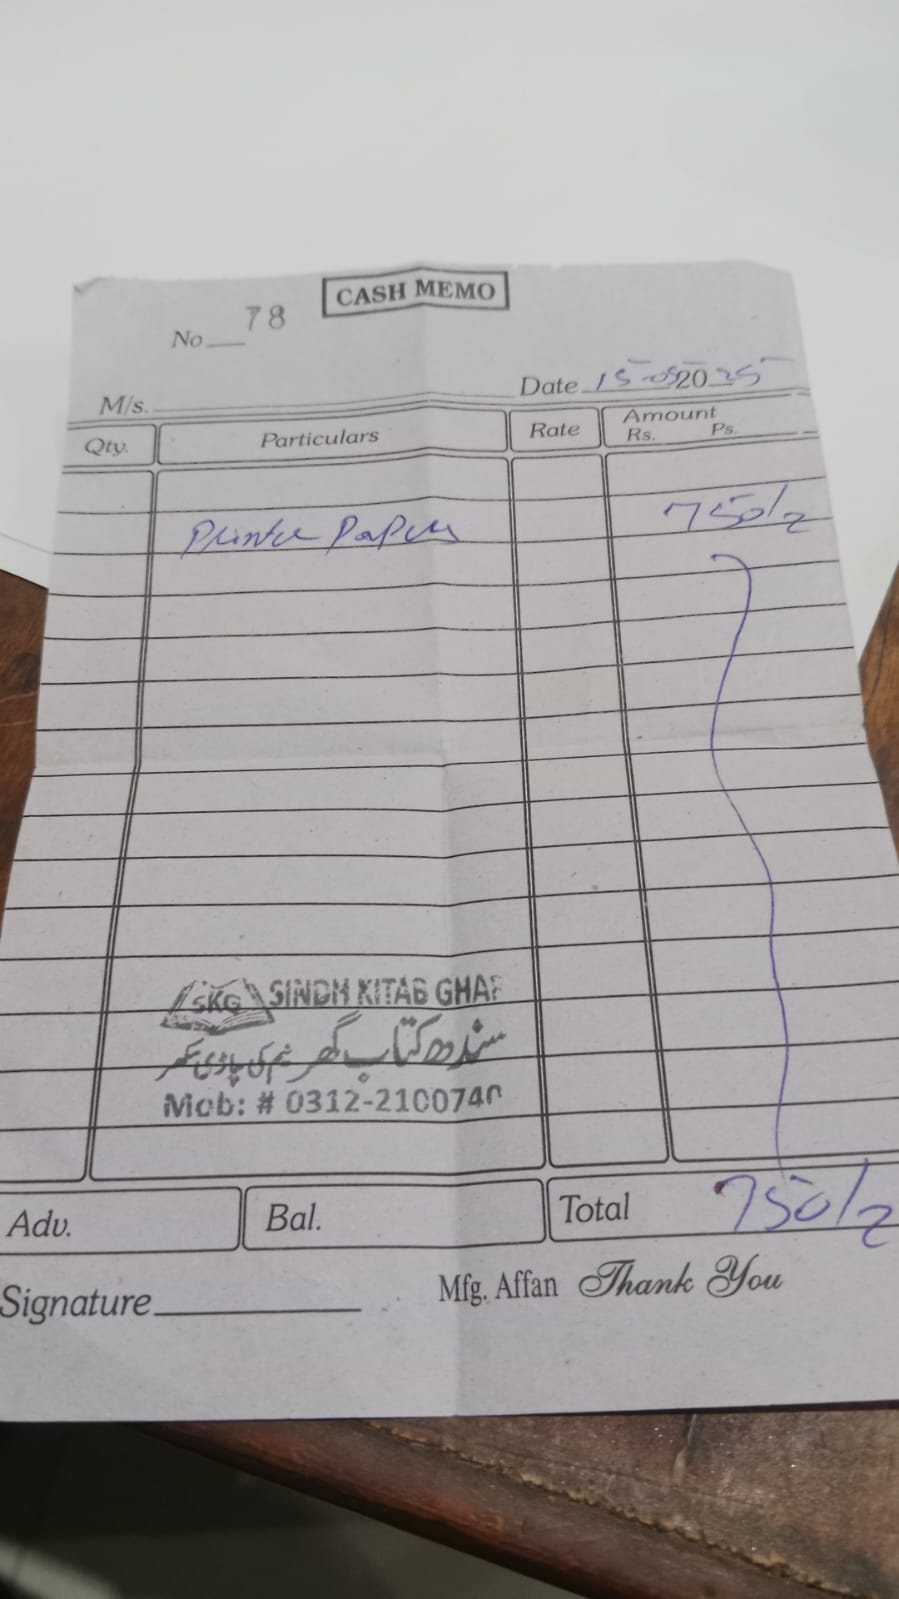 CASH MEMO
No 78
Date 15-05 2025
M/s.
Qty. Particulars Rate Amount
Rs. Ps.
Printer Papers 750/=
SKG SINDH KITAB GHAR
سندھ کتاب گھر نیم کی چاڑی سکھر
Mob: # 0312-2100740
Adv. Bal. Total 750/=
Signature Mfg. Affan Thank You